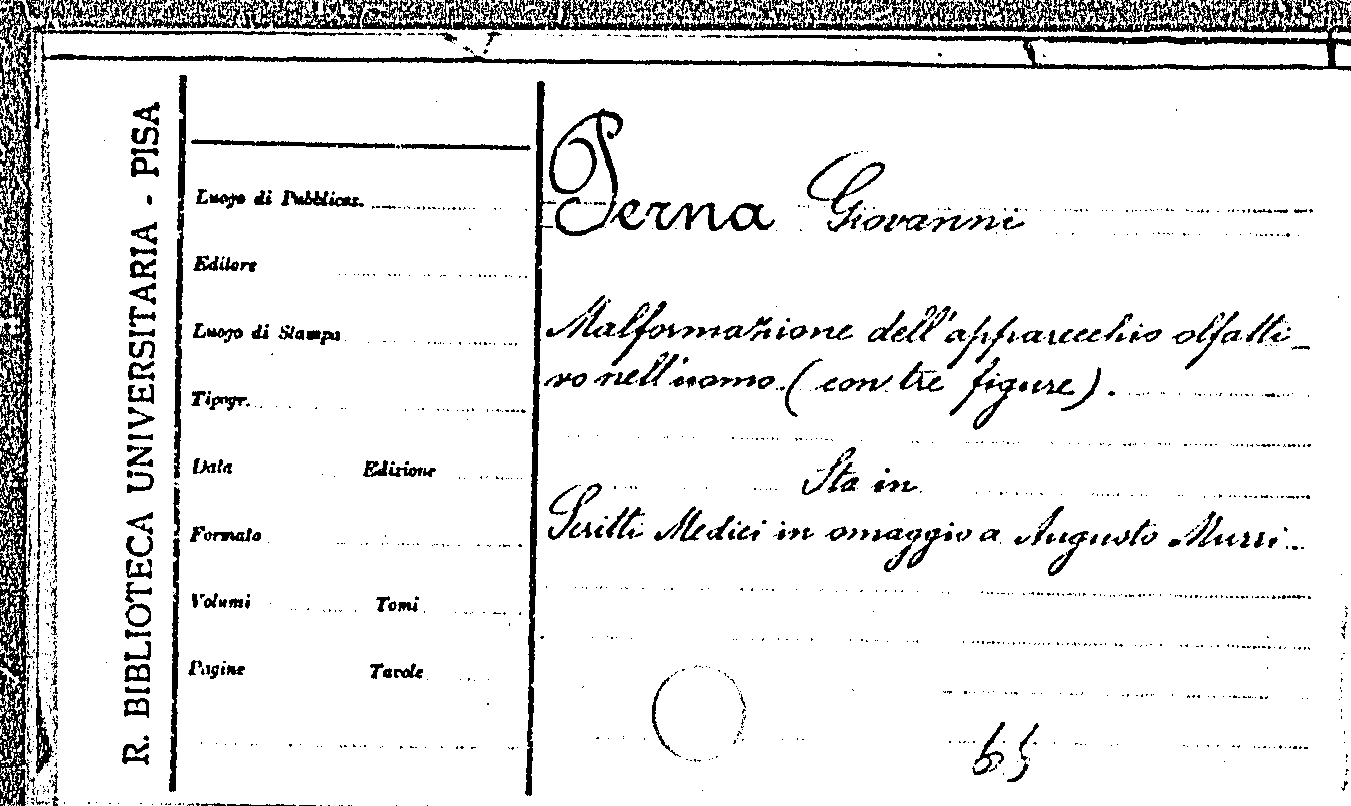 R. BIBLIOTECA UNIVERSITARIA - PISA
Luogo di Pubblicaz.
Editore
Luogo di Stampa
Tipogr.
Data Edizione
Formato
Volumi Tomi
Pagine Tavole
Perna Giovanni
Malformazione dell'apparecchio olfatti-
vo nell'uomo (con tre figure).
Sta in
Scritti Medici in omaggio a Augusto Murri.